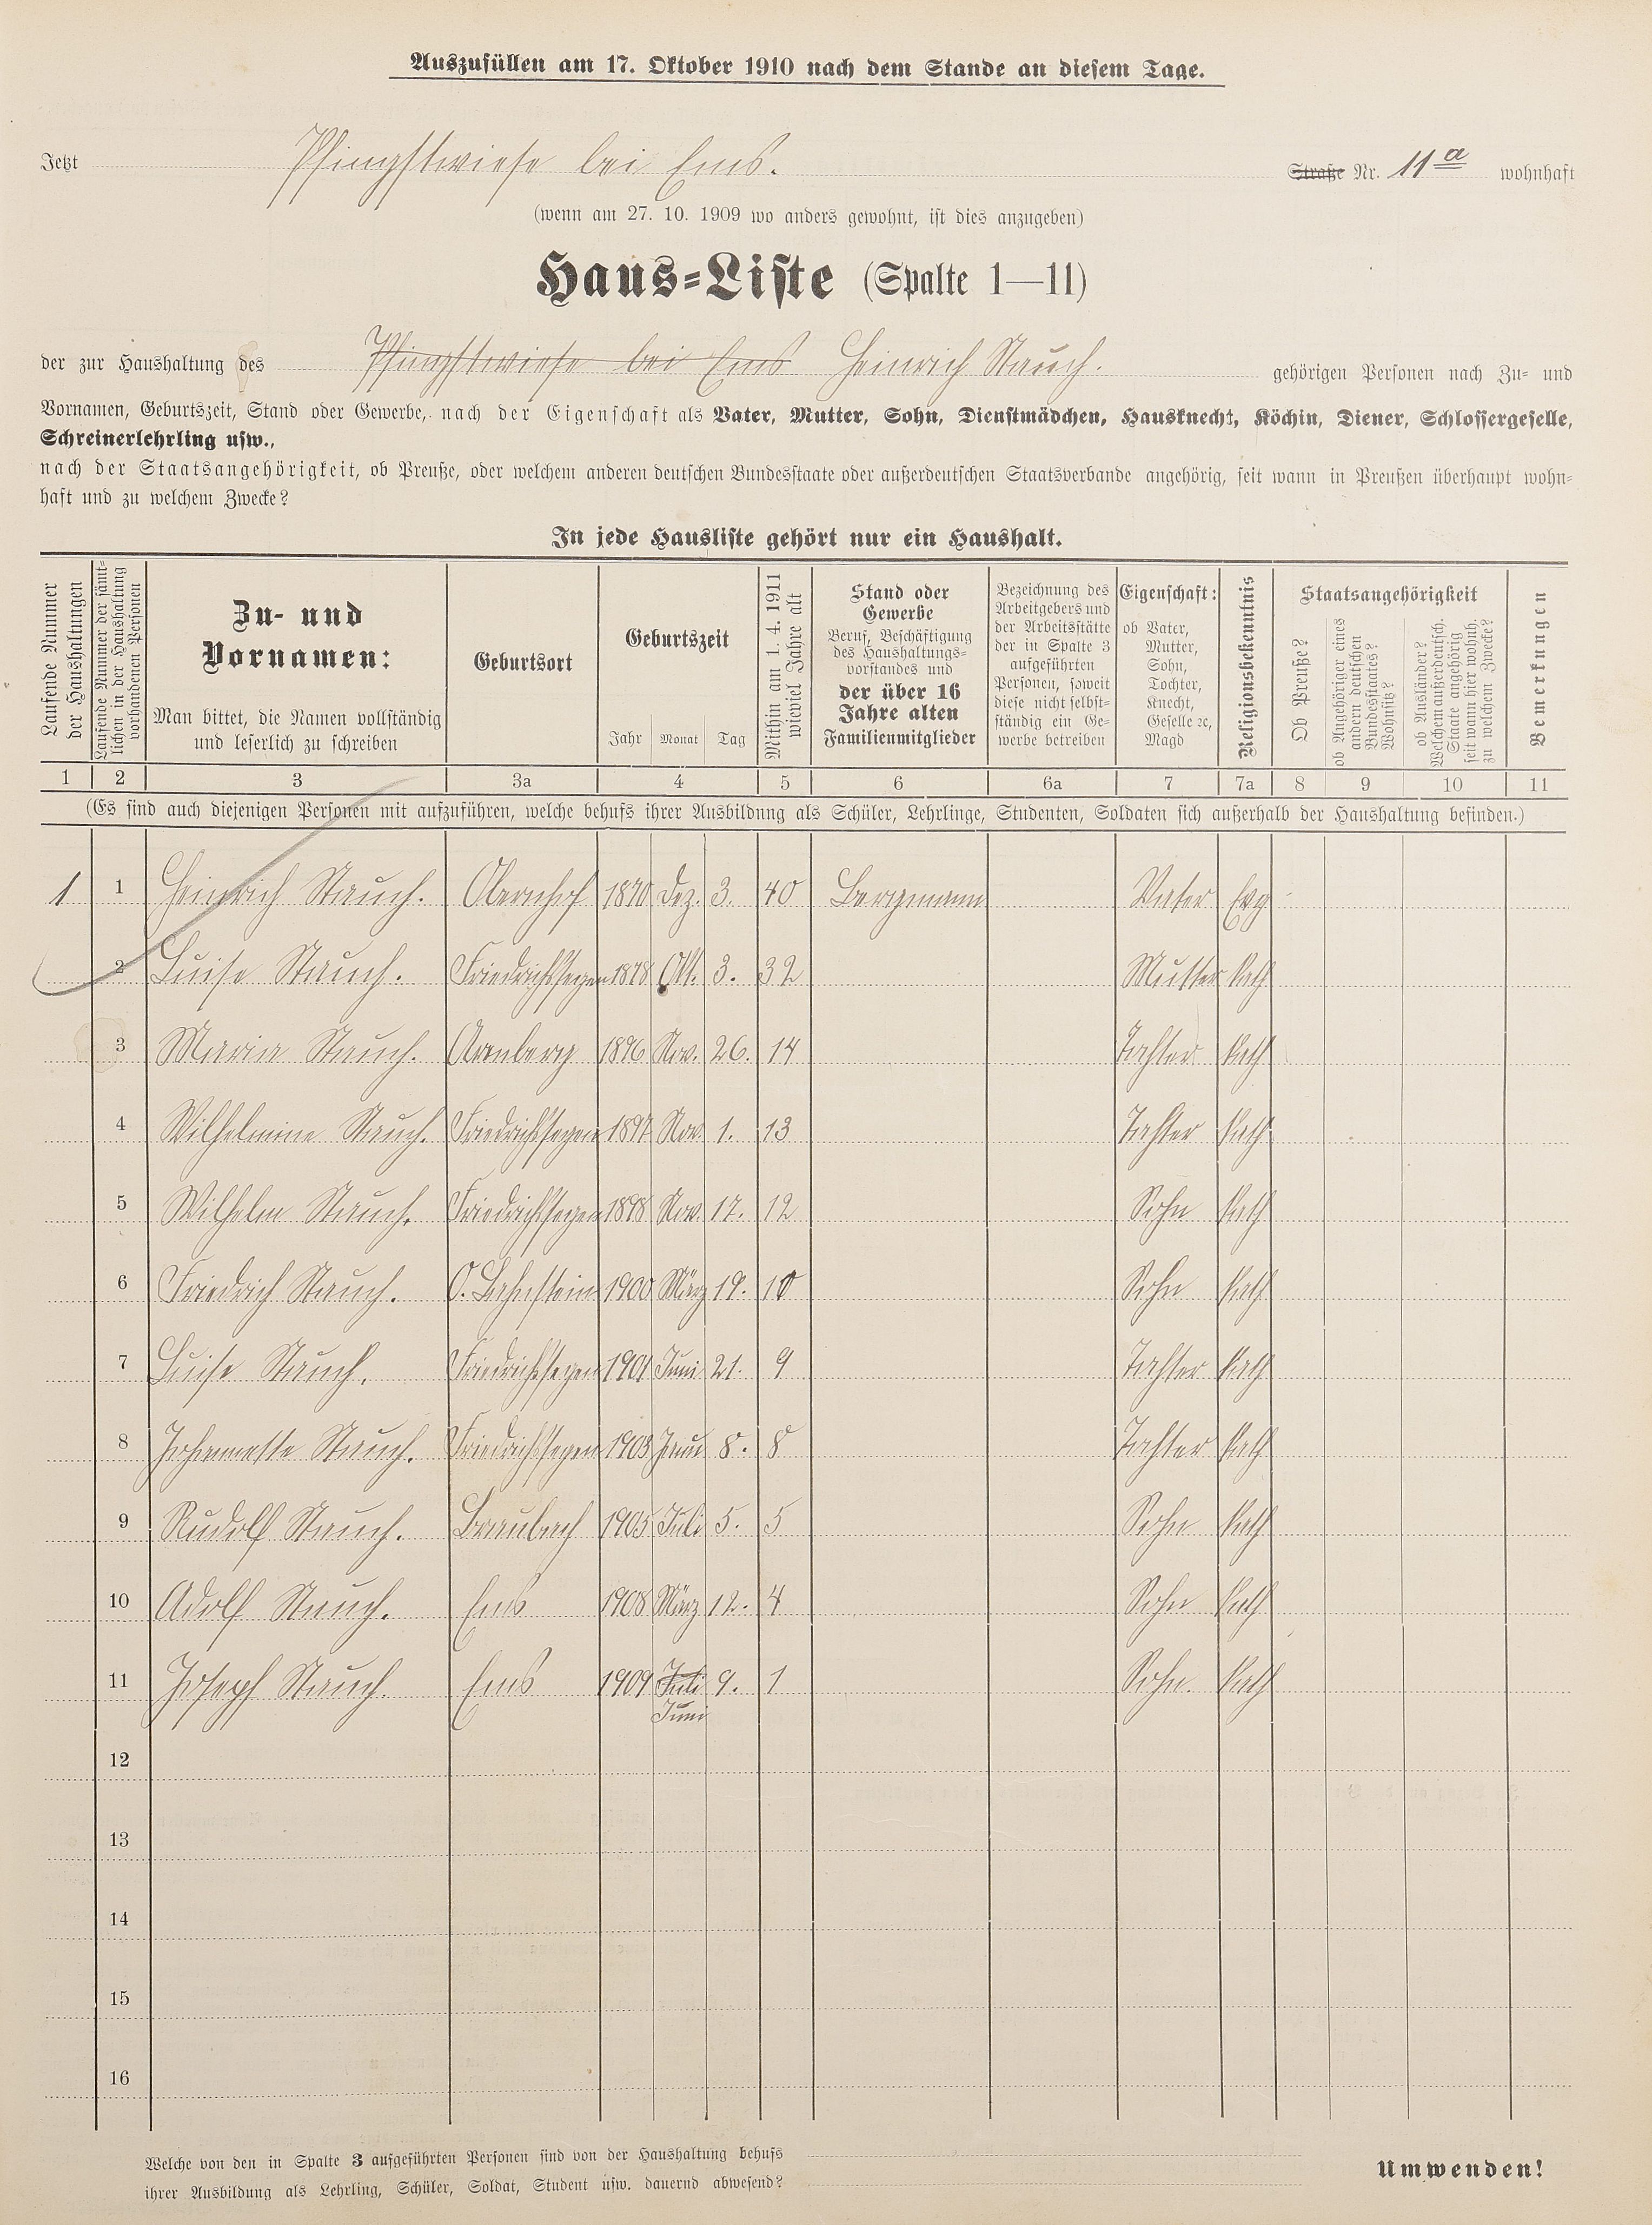 Auszufüllen am 17. Oktober 1910 nach dem Stande an diesem Tage.
Jetzt Pfingstwiese bei Ems. Straße Nr. 11a wohnhaft
(wenn am 27. 10. 1909 wo anders gewohnt, ist dies anzugeben)
Haus-Liste (Spalte 1—11)
der zur Haushaltung des Pfingstwiese bei Ems Heinrich Stauch. gehörigen Personen nach Zu- und
Vornamen, Geburtszeit, Stand oder Gewerbe, nach der Eigenschaft als Vater, Mutter, Sohn, Dienstmädchen, Hausknecht, Köchin, Diener, Schlossergeselle,
Schreinerlehrling usw.,
nach der Staatsangehörigkeit, ob Preuße, oder welchem anderen deutschen Bundesstaate oder außerdeutschen Staatsverbande angehörig, seit wann in Preußen überhaupt wohn-
haft und zu welchem Zwecke?
In jede Hausliste gehört nur ein Haushalt.
Laufende Nummer
der Haushaltungen
Laufende Nummer der sämt-
lichen in der Haushaltung
vorhandenen Personen
Zu- und
Vornamen:
Man bittet, die Namen vollständig
und leserlich zu schreiben
Geburtsort
Geburtszeit
Jahr Monat Tag
Mithin am 1. 4. 1911
wieviel Jahre alt
Stand oder
Gewerbe
Beruf, Beschäftigung
des Haushaltungs-
vorstandes und
der über 16
Jahre alten
Familienmitglieder
Bezeichnung des
Arbeitgebers und
der Arbeitsstätte
der in Spalte 3
aufgeführten
Personen, soweit
diese nicht selbst-
ständig ein Ge-
werbe betreiben
Eigenschaft:
ob Vater,
Mutter,
Sohn,
Tochter,
Knecht,
Geselle ec,
Magd
Religionsbekenntnis
Staatsangehörigkeit
Ob Preuße?
ob Angehöriger eines
andern deutschen
Bundesstaates?
Wohnsitz?
ob Ausländer?
Welchem außerdeutsch.
Staate angehörig
seit wann hier wohnh.
zu welchem Zwecke?
Bemerkungen
1 2 3 3a 4 5 6 6a 7 7a 8 9 10 11
(Es sind auch diejenigen Personen mit aufzuführen, welche behufs ihrer Ausbildung als Schüler, Lehrlinge, Studenten, Soldaten sich außerhalb der Haushaltung befinden.)
1 1 Heinrich Stauch. Obernhof 1870 Dez. 3. 40 Bergmann Vater Evg
2 Luise Stauch. Friedrichssegen 1878 Okt. 3. 32 Mutter Kath
3 Maria Stauch. Arenberg 1896 Nov. 26. 14 Tochter Kath
4 Wilhelmine Stauch. Friedrichssegen 1897 Nov. 1. 13 Tochter Kath
5 Wilhelm Stauch. Friedrichssegen 1898 Nov. 17. 12 Sohn Kath
6 Friedrich Stauch. O. Lahnstein 1900 März 19. 10 Sohn Kath
7 Luise Stauch. Friedrichssegen 1901 Juni 21. 9 Tochter Kath
8 Johannette Stauch. Friedrichssegen 1903 Janu 8. 8 Tochter Kath
9 Rudolf Stauch. Braubach 1905 Juli 5. 5 Sohn Kath
10 Adolf Stauch. Ems 1908 März 12. 4 Sohn Kath
11 Joseph Stauch. Ems 1909 Juli 9. 1 Sohn Kath
Juni
12
13
14
15
16
Welche von den in Spalte 3 aufgeführten Personen sind von der Haushaltung behufs
ihrer Ausbildung als Lehrling, Schüler, Soldat, Student usw. dauernd abwesend?
Umwenden!